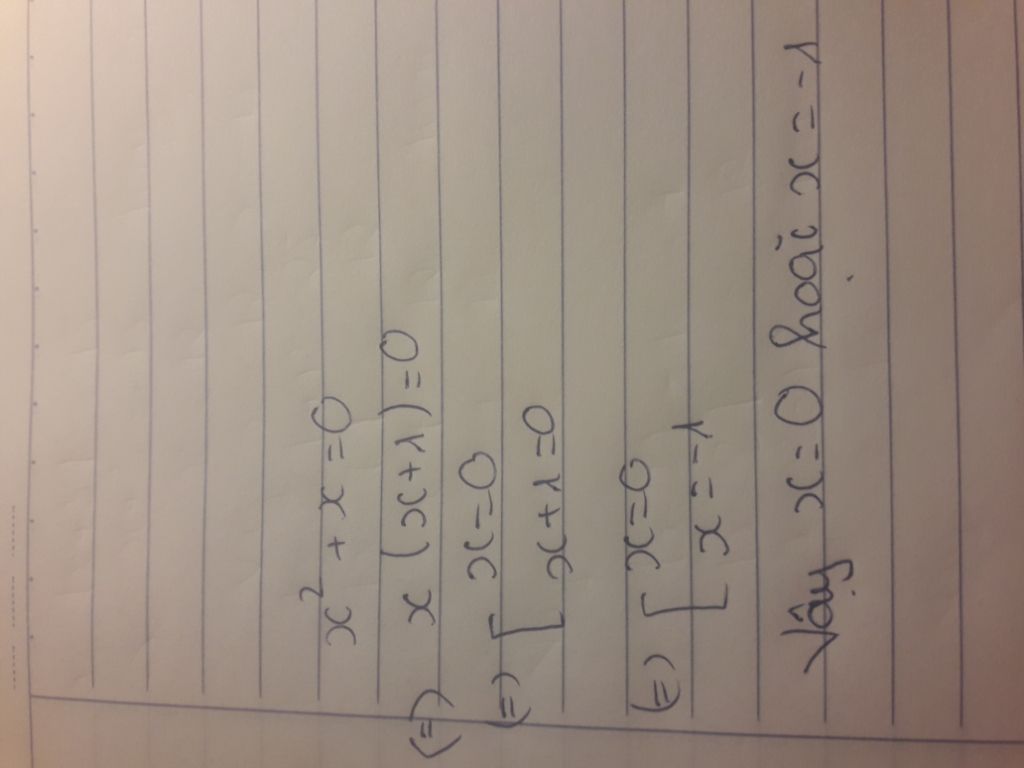 x² + x = 0
(=) x (x+1) = 0
(=) [ x = 0
x + 1 = 0
(=) [ x = 0
x = -1
Vậy x = 0 hoặc x = -1